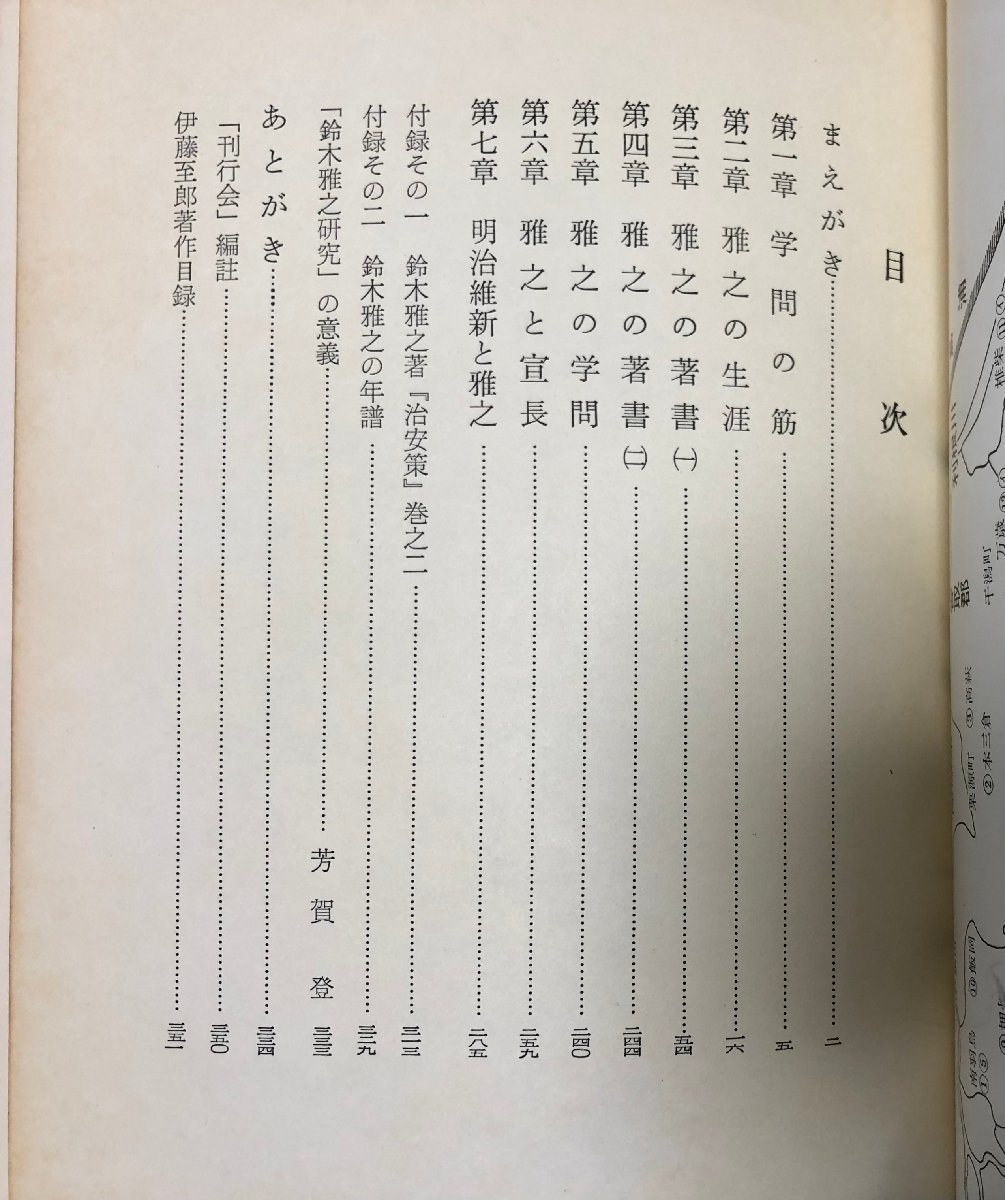 目次
まえがき……二
第一章 学問の筋……五
第二章 雅之の生涯……一六
第三章 雅之の著書㈠……五四
第四章 雅之の著書㈡……二四四
第五章 雅之の学問……二四〇
第六章 雅之と宣長……二五九
第七章 明治維新と雅之……二八五
付録その一 鈴木雅之著『治安策』巻之二……三一三
付録その二 鈴木雅之の年譜……三二九
「鈴木雅之研究」の意義……芳賀 登 三三三
あとがき……三三四
「刊行会」編註……三五〇
伊藤至郎著作目録……三五一
干潟町
栗源町
③高萩
②本三倉
飯岡